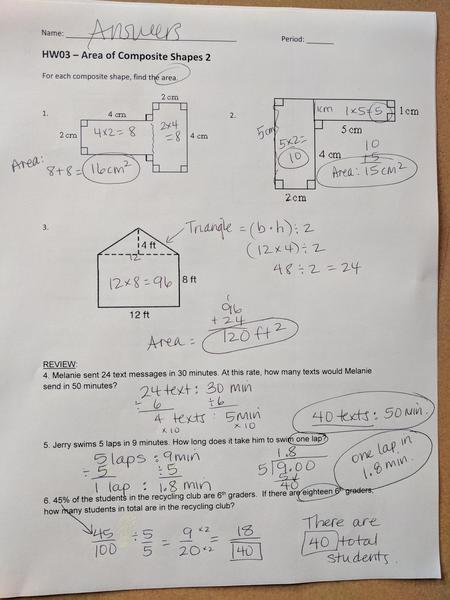 Name: Answers Period:
HW03 – Area of Composite Shapes 2
For each composite shape, find the area.
1.
4 cm
2 cm
2 cm
4×2=8
2×4
=8
4 cm
Area:
8+8= 16cm²
2.
1cm 1×5=5 1 cm
5cm
5 cm
5×2=
10
4 cm
10
+5
Area: 15cm²
2 cm
3.
4 ft
12
12×8=96
8 ft
12 ft
Triangle = (b·h)÷2
(12×4)÷2
48÷2=24
1
96
+24
Area = 120 ft²
REVIEW:
4. Melanie sent 24 text messages in 30 minutes. At this rate, how many texts would Melanie
send in 50 minutes?
24 text : 30 min
÷6 ÷6
4 texts : 5min
×10 ×10
40 texts : 50 min.
5. Jerry swims 5 laps in 9 minutes. How long does it take him to swim one lap?
5 laps : 9min
÷5 ÷5
1 lap : 1.8 min
1.8
5 9.00
40
one lap in
1.8 min.
6. 45% of the students in the recycling club are 6th graders. If there are eighteen 6th graders,
how many students in total are in the recycling club?
45/100 ÷ 5/5 = 9/20 ×2/×2 = 18/40
There are
40 total
students.